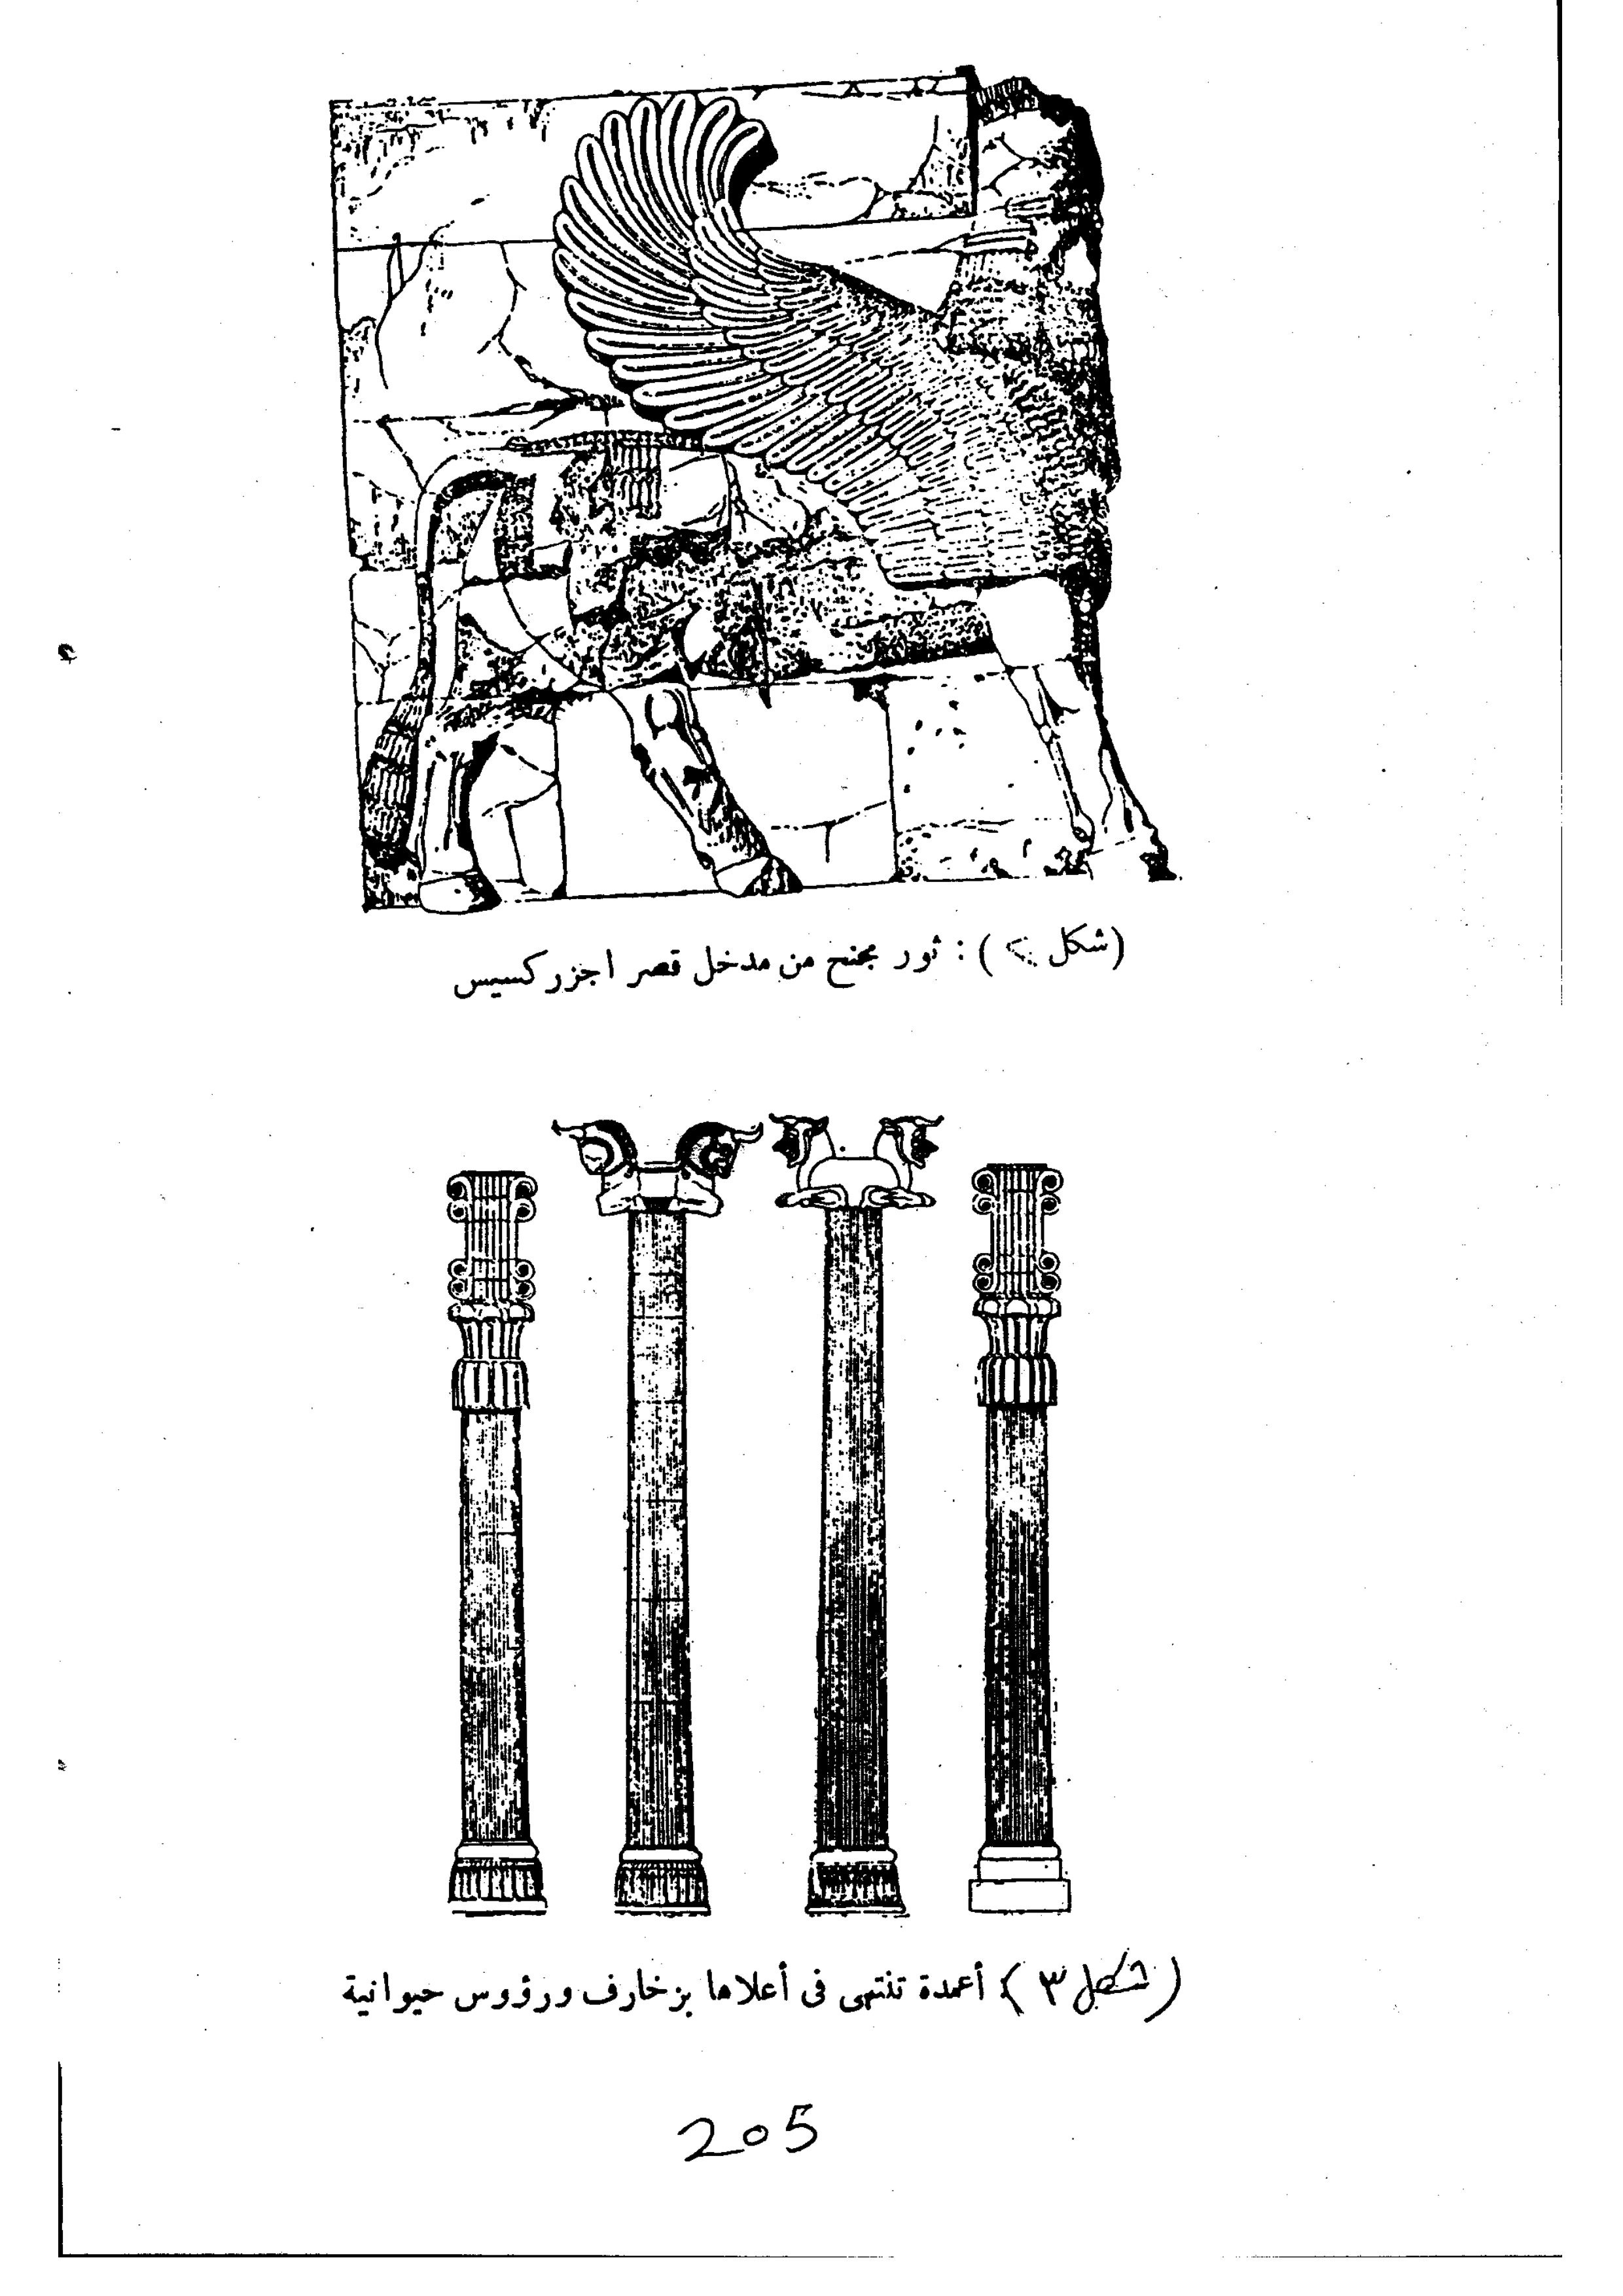 (شكل ٢) : ثور مجنح من مدخل قصر اجزركسيس
(شكل ٣) أعمدة تنتهى فى أعلاها بزخارف ورؤوس حيوانية
205